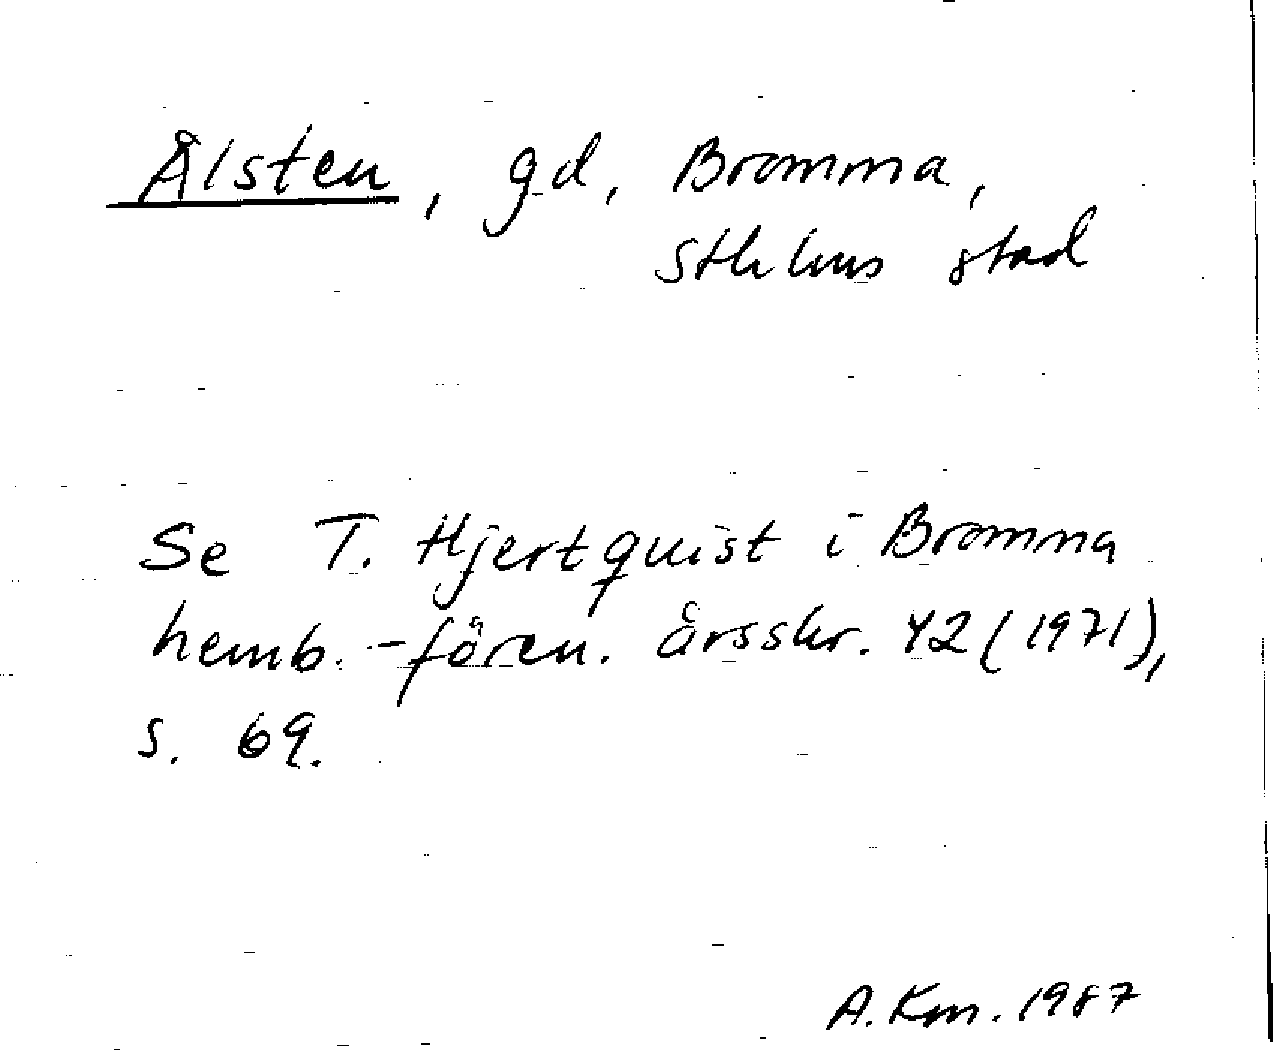 Ålsten, gd, Bromma,
Sthlms stad
Se T. Hjertquist i Bromma
hemb.-fören. årsskr. 42 (1971),
s. 69.
A. Km. 1987